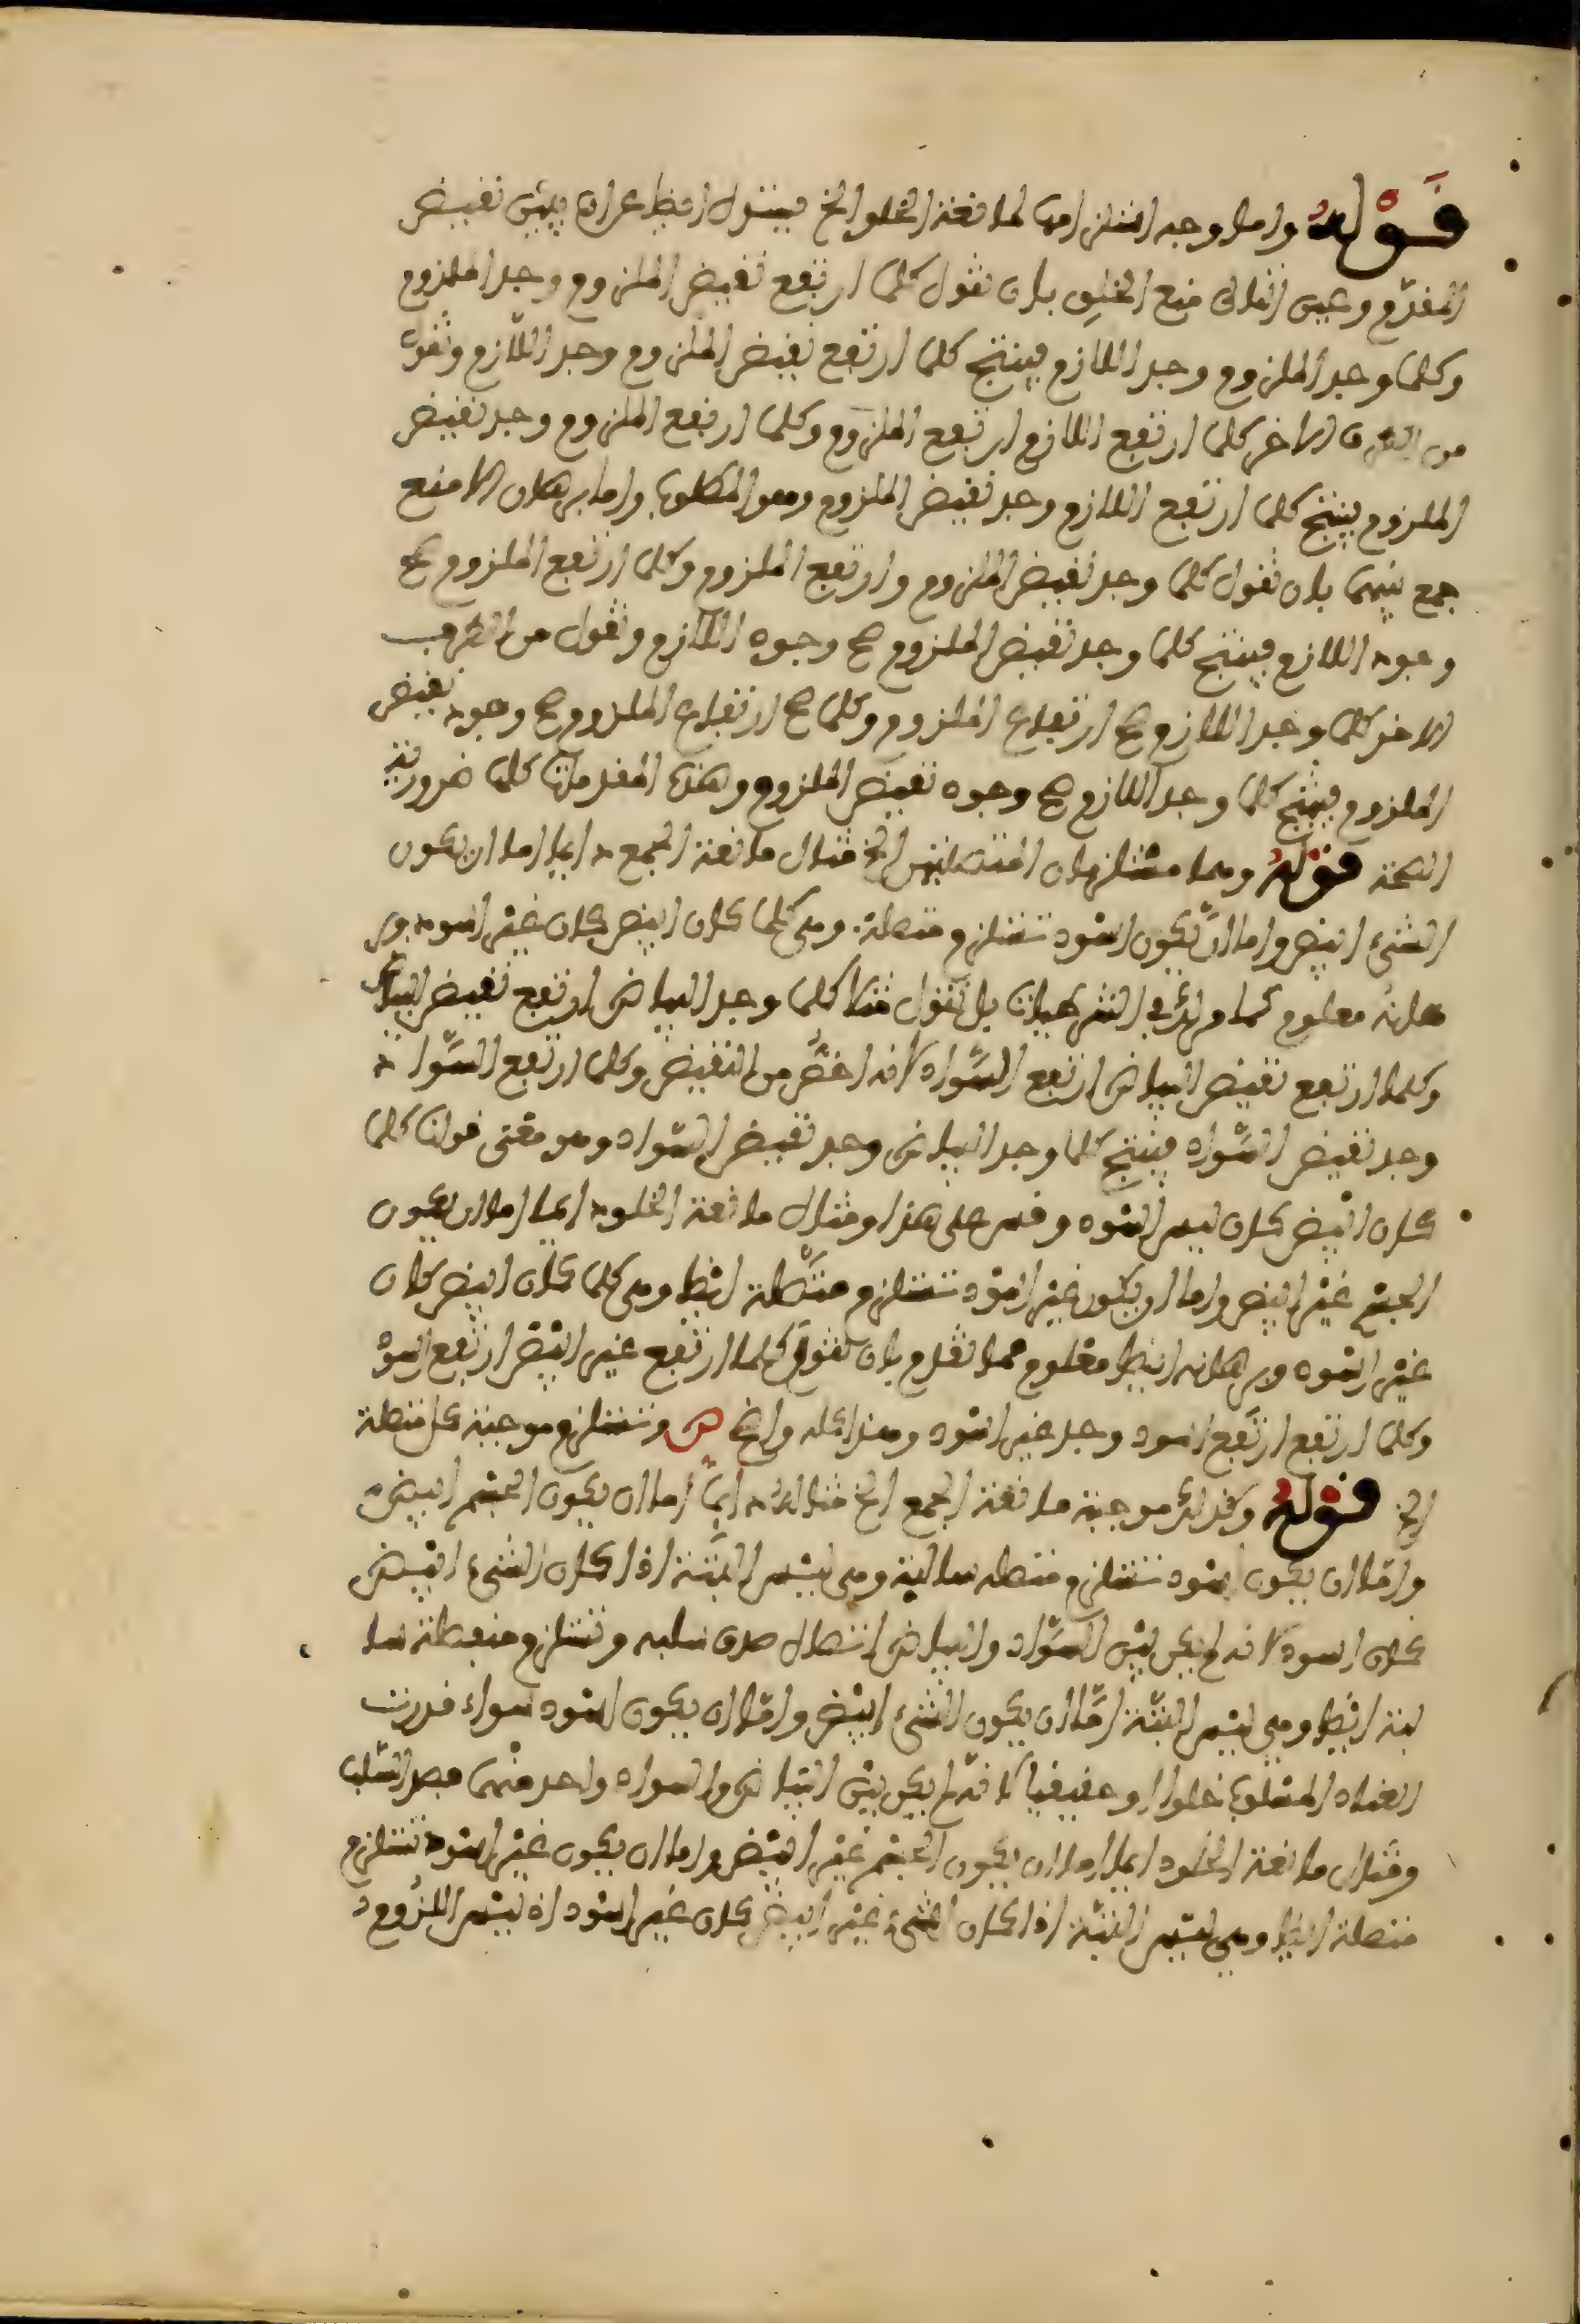 قوله واما وجه استلزامها لمانعة الخلو الخ فيتنزل ايضا على ان بين نقيض
المقدم وعين التالي منع الخلو بان تقول كلما ارتفع نقيض الملزوم وجد الملزوم
وكلما وجد الملزوم وجد اللازم فينتج كلما ارتفع نقيض الملزوم وجد اللازم وتقول
من الطرف الاخر كلما ارتفع اللازم ارتفع الملزوم وكلما ارتفع الملزوم وجد نقيض
الملزوم فينتج كلما ارتفع اللازم وجد نقيض الملزوم وهو المطلوب واما برهان الا منع
جمع بينهما بان تقول كلما وجد نقيض الملزوم وارتفع الملزوم وكلما ارتفع الملزوم صح
وجود اللازم فينتج كلما وجد نقيض الملزوم صح وجود اللازم وتقول من الطرف
الاخر كلما وجد اللازم صح ارتفاع الملزوم وكلما صح ارتفاع الملزوم صح وجود نقيض
الملزوم فينتج كلما وجد اللازم صح وجود نقيض الملزوم وهذه المقدمات كلها ضرورية
الصحة قوله وهما مستلزمان المتصلتين الخ مثال مانعة الجمع دايما اما ان يكون
الشيء ابيض واما ان يكون اسود تستلزم متصلة وهي كلما كان ابيض كان غير اسود وبر
هانه معلوم كما مر لك في الشرطيات بل تقول مثلا كلما وجد البياض ارتفع نقيض البياض
وكلما ارتفع نقيض البياض ارتفع السواد لانه اخص من النقيض وكلما ارتفع السواد
وجد نقيض السواد فينتج كلما وجد البياض وجد نقيض السواد وهو معنى قولنا كلما
كان ابيض كان ليس اسود وقس على هذا ومثال مانعة الخلو دايما اما ان يكون
الجسم غير ابيض واما ان يكون غير اسود تستلزم متصلة ايضا وهي كلما كان ابيض كان
غير اسود وبرهانه ايضا معلوم مما تقدم بان تقول كلما ارتفع غير ابيض ارتفع اسود
وكلما ارتفع ارتفع اسود وجد غير اسود وهذا كله واضح ص وتستلزم موجبة كل متصلة
الخ قوله وكذلك موجبة مانعة الجمع الخ مثال ذلك دايما اما ان يكون الجسم ابيض
واما ان يكون اسود تستلزم متصلة سالبة وهي ليس البتة اذا كان الشيء ابيض
كان اسود لانه لم يكن بين السواد والبياض اتصال صدق سلبه وتستلزم منفصلة سا
لبة ايضا وهي ليس البتة اما ان يكون الشيء ابيض واما ان يكون اسود سواء قدرت
العناد المسلوب خلوا او حقيقيا لانه لم يكن بين البياض والسواد واحد منهما فصدق السلب
ومثال مانعة الخلو دايما اما ان يكون الجسم غير ابيض واما ان يكون غير اسود تستلزم
متصلة ايضا وهي ليس البتة اذا كان الشيء غير ابيض كان غير اسود اذ ليس اللزوم